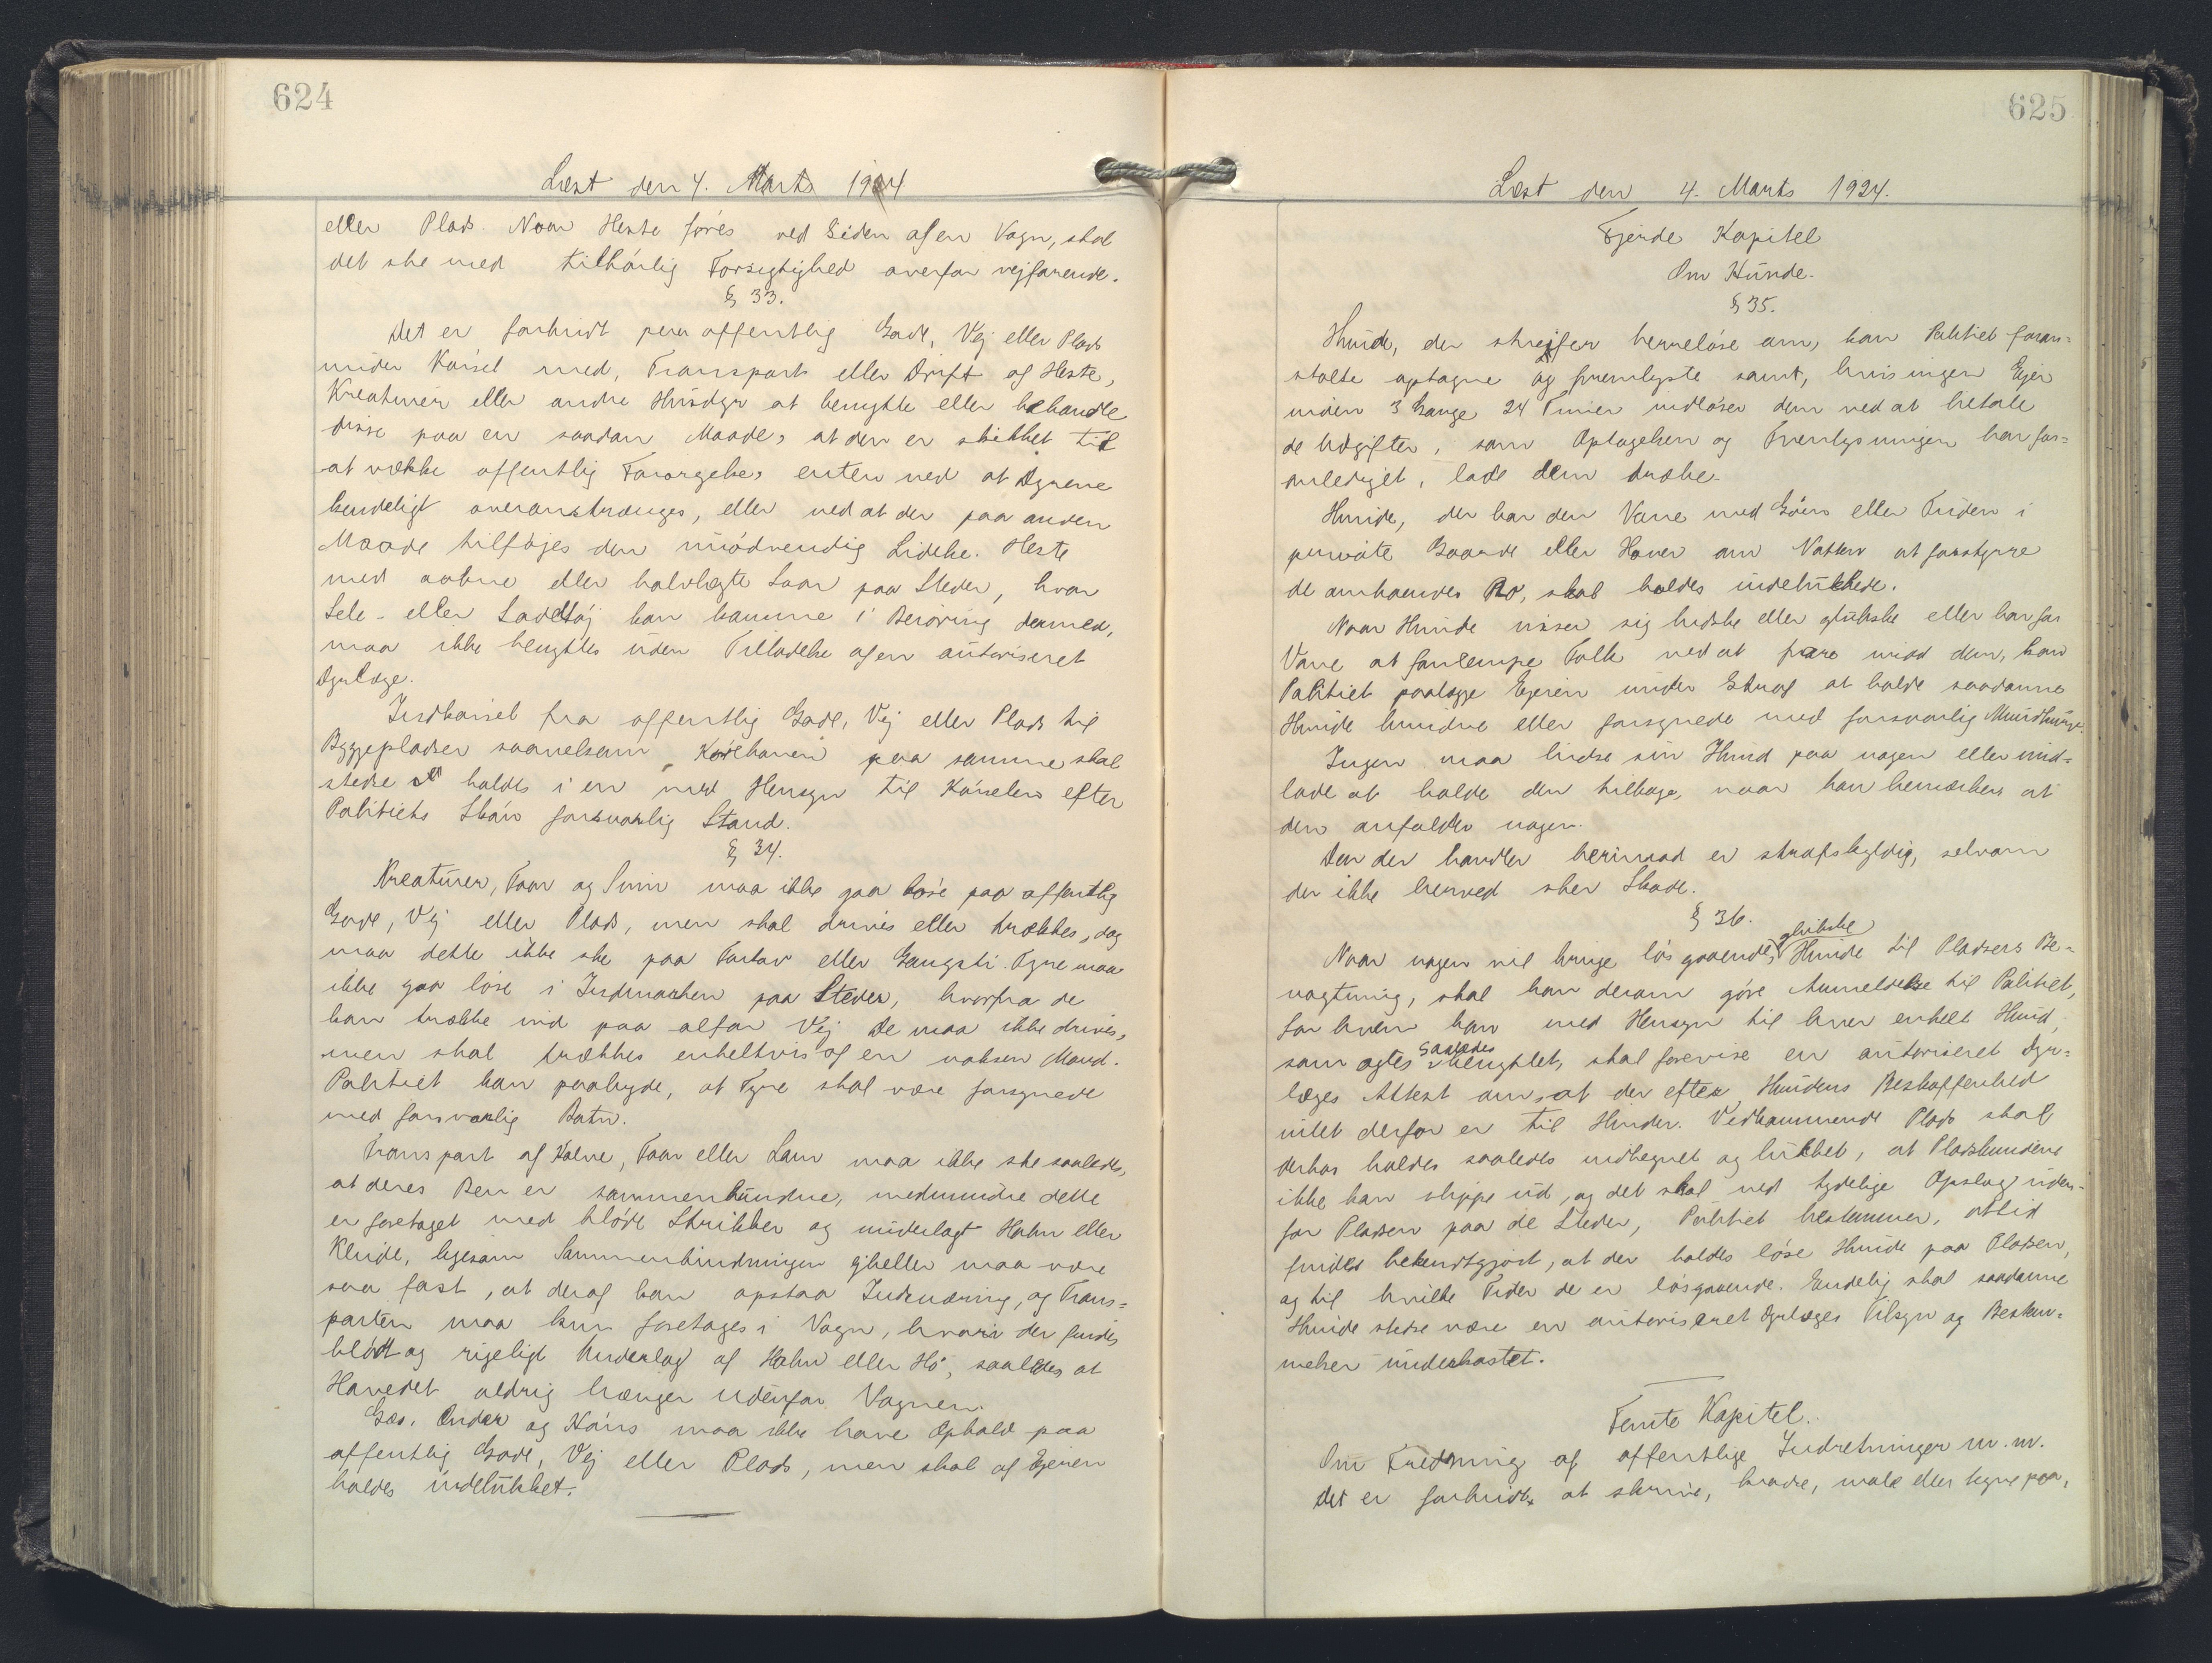 624
Læst den 4. Marts 1924
eller Plads. Naar Heste føres ved Siden af en Vogn, skal
det ske med tilbørlig Forsigtighed overfor vejfarende.
§ 33.
Det er forbudt paa offentlig Gade, Vej eller Plads
under Kørsel med, Transport eller Drift af Heste,
Kreaturer eller andre Husdyr at benytte eller behandle
disse paa en saadan Maade, at den er skikket til
at vække offentlig Forargelse, enten ved at Dyrene
kendeligt overanstrænges, eller ved at der paa anden
Maade tilføjes dem unødvendig Lidelse. Heste
med aabne eller halvlægte Saar paa Steder, hvor
Sele- eller Sadeltøj kan komme i Berøring dermed,
maa ikke benyttes uden Tilladelse af en autoriseret
Dyrlæge.
Indkørsel fra offentlig Gade, Vej eller Plads til
Byggepladser saavelsom Kørebanen paa samme skal
stedse holdes i en med Hensyn til Kørselen efter
Politiets Skøn forsvarlig Stand.
§ 34.
Kreaturer, Faar og Svin maa ikke gaa løse paa offentlig
Gade, Vej eller Plads, men skal drives eller trækkes, dog
maa dette ikke ske paa Fortov eller Gangsti. Tyre maa
ikke gaa løse i Indmarken paa Steder, hvorfra de
kan trække ind paa alfar Vej. De maa ikke drives,
men skal trækkes enkeltvis af en voksen Mand.
Politiet kan paabyde, at Tyre skal være forsynede
med forsvarlig
Transport af Kalve, Faar eller Lam maa ikke ske saaledes,
at deres Ben er sammenbundne, medmindre dette
er foretaget med bløde Strikker og underlagt Halm eller
Klude, ligesom Sammenbindningen ejheller maa være
saa fast, at deraf kan opstaa Indsnøring, og Trans=
porten maa kun foretages i Vogn, hvori der findes
blødt og rigeligt Underlag af Halm eller Hø, saaledes at
Hovedet aldrig hænger udenfor Vognen.
Gæs, Ænder og Høns maa ikke have Ophold paa
offentlig Gade, Vej eller Plads, men skal af Ejeren
holdes indelukket.
625
Læst den 4. Marts 1924.
Fjerde Kapitel
Om Hunde.
§ 35.
Hunde, der strejfer herreløse om, kan Politiet foran=
stalte optagne og fremlyste samt, hvis ingen Ejer
inden 3 Gange 24 Timer indløser dem ved at betale
de Udgifter, som Optagelsen og Fremlysningen har for=
anlediget, lade dem dræbe.
Hunde, der har den Vane ved Gøen eller Tuden i
private Gaarde eller Haver om Natten at forstyrre
de omboendes Ro, skal holdes indelukkede.
Naar Hunde viser sig bidske eller glubske eller har for
Vane at forulempe Folk ved at fare mod dem, kan
Politiet paalægge Ejeren under Straf at holde saadanne
Hunde bundne eller forsynede med forsvarlig Mundkurv.
Ingen maa hidse sin Hund paa nogen eller und=
lade at holde den tilbage, naar han bemærker at
den anfalder nogen.
Den der handler herimod er strafskyldig, selvom
der ikke herved sker Skade.
§ 36.
Naar nogen vil bruge løsgaaende, glubske Hunde til Pladsers Be=
vogtning, skal han derom gøre Anmeldelse til Politiet,
for hvem han med Hensyn til hver enkelt Hund,
som agtes saaledes benyttet, skal forevise en autoriseret Dyr=
læges Attest om, at der efter Hundens Beskaffenhed
intet derfor er til Hinder. Vedkommende Plads skal
derhos holdes saaledes indhegnet og lukket, at Pladshundene
ikke kan slippe ud, og det skal ved tydelige Opslag uden=
for Pladsen paa de Steder, Politiet bestemmer, altid
findes bekendtgjort, at der holdes løse Hunde paa Pladsen,
og til hvilke Tider de er løsgaaende. Endelig skal saadanne
Hunde stedse være en autoriseret Dyrlæges Tilsyn og Bestem=
melser underkastet.
Femte Kapitel.
Om Fredning af offentlige Indretninger m.m.
Det er forbudt at skrive, kradse, male eller tegne paa,